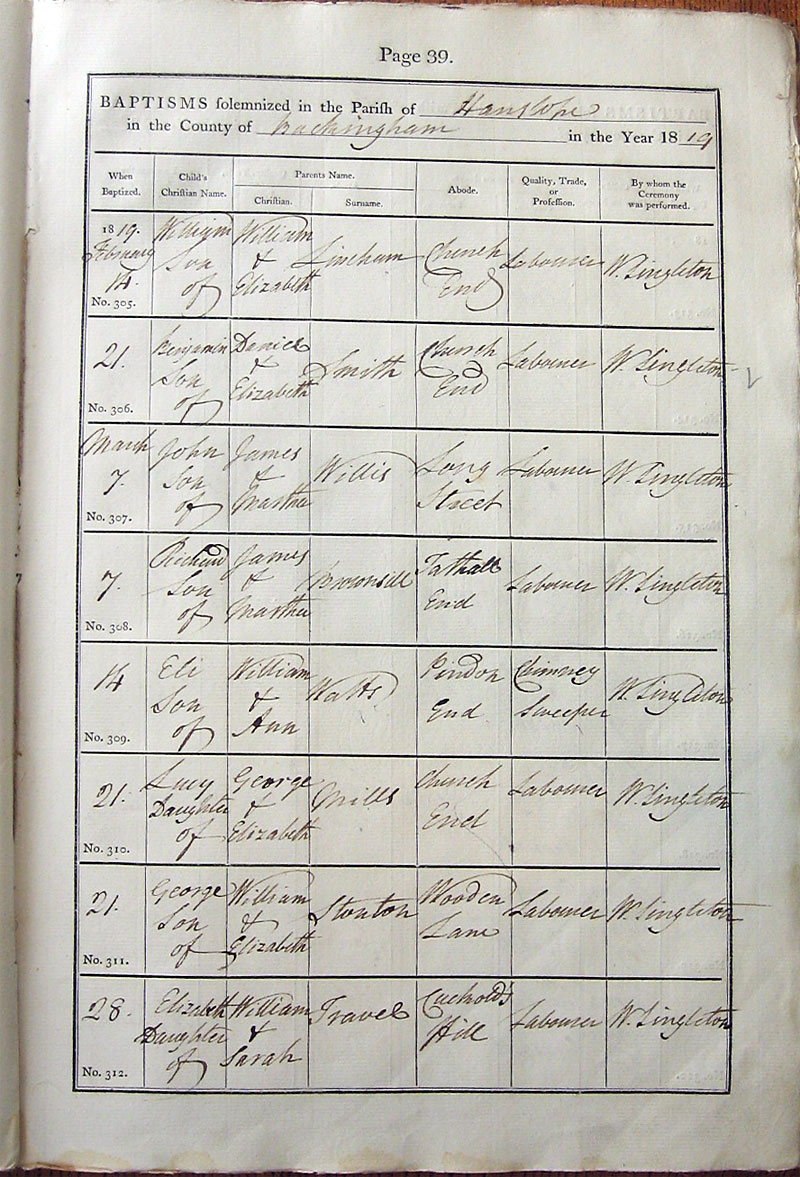 Page 39.
BAPTISMS solemnized in the Parish of Hanslope
in the County of Buckingham in the Year 1819
When Baptized. Child's Christian Name. Parents Name. Christian. Surname. Abode. Quality, Trade, or Profession. By whom the Ceremony was performed.
1819. February 14. No. 305. William Son of William & Elizabeth Lineham Church End Labourer W. Singleton
21. No. 306. Benjamin Son of Daniel & Elizabeth Smith Church End Labourer W. Singleton
March 7. No. 307. John Son of James & Martha Willis Long Street Labourer W. Singleton
7. No. 308. Richard Son of James & Martha Brownsill Tathall End Labourer W. Singleton
14 No. 309. Eli Son of William & Ann Watts Pindon End Chimney Sweeper W. Singleton
21. No. 310. Lucy Daughter of George & Elizabeth Mills Church End Labourer W. Singleton
21. No. 311. George Son of William & Elizabeth Stonton Wooden Lane Labourer W. Singleton
28. No. 312. Elizabeth Daughter of William & Sarah Travel Cuckold's Hill Labourer W. Singleton